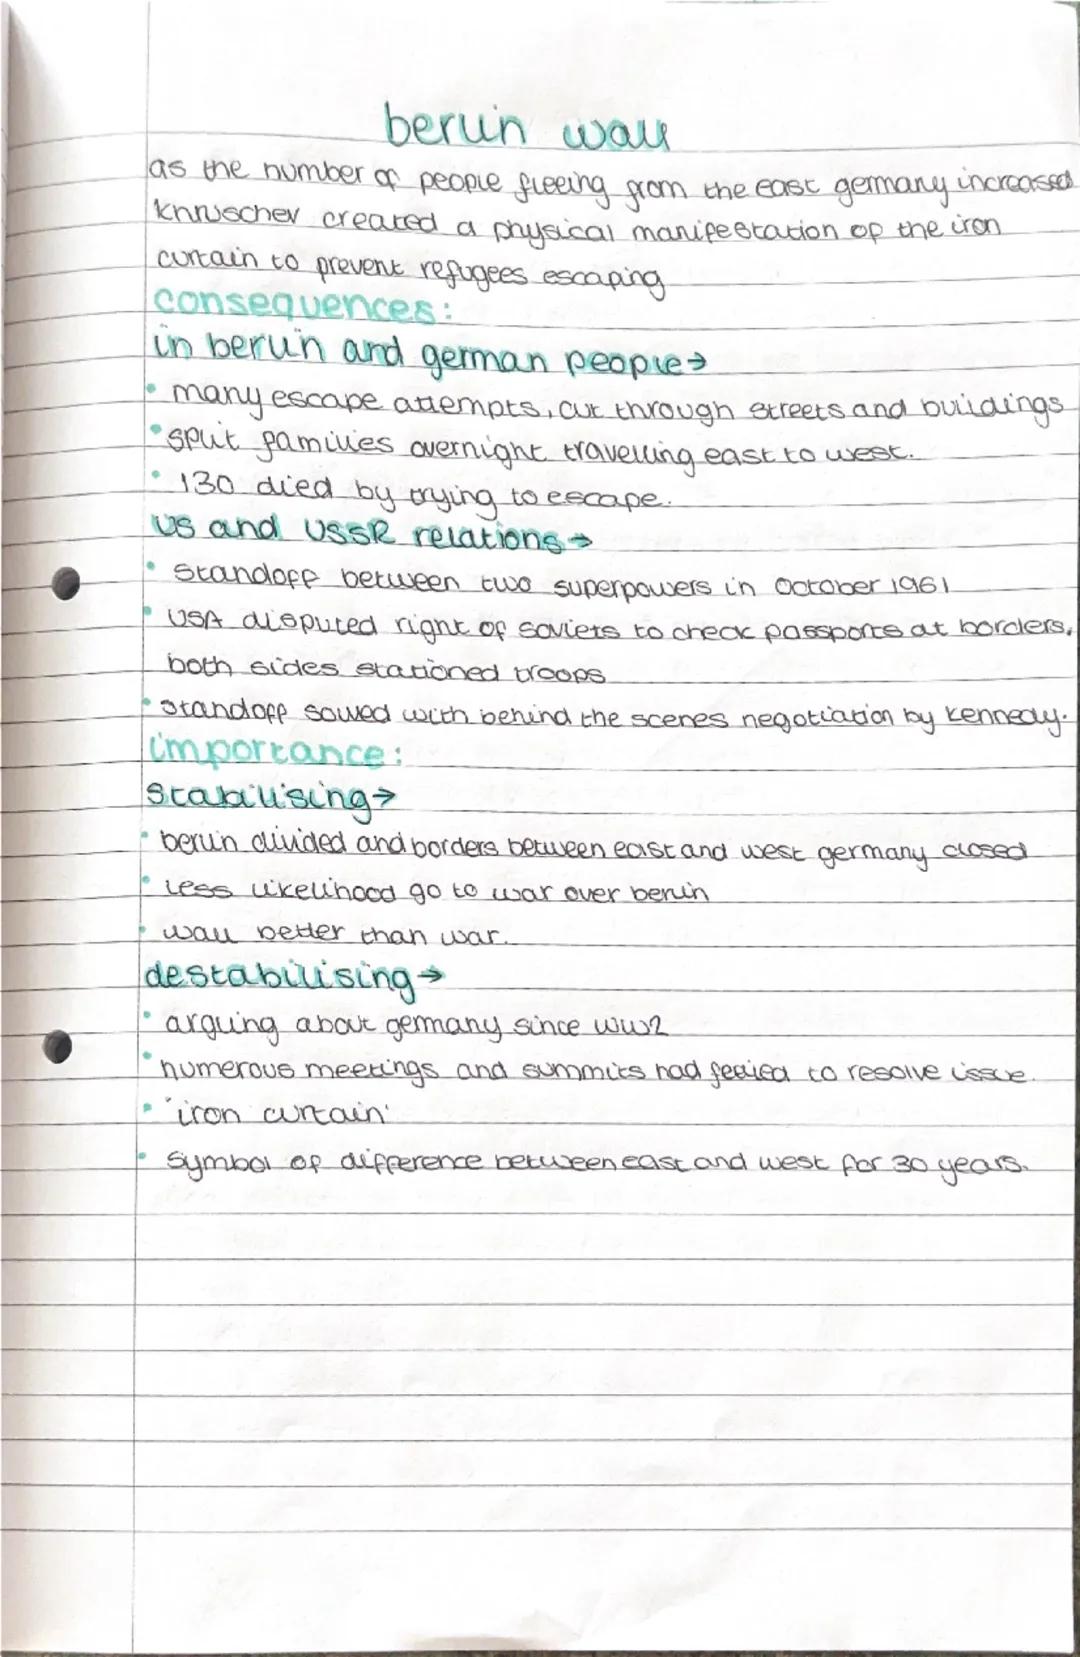 berlin wall
as the number of people fleeing from the east germany increased
Khruschev created a physical manifestation of the iron
curtain to prevent refugees escaping
consequences:
in berlin and german people→
• many escape attempts, cut through streets and buildings
• split families overnight travelling east to west.
• 130 died by trying to escape.
US and USSR relations→
• standoff between two superpowers in October 1961
• USA disputed right of soviets to check passports at borders,
both sides stationed troops
• standoff solved with behind the scenes negotiation by kennedy.
importance:
stabilising→
• berlin divided and borders between east and west germany closed
• less likelihood go to war over berlin
• wall better than war.
destabilising→
• arguing about germany since ww2
• numerous meetings and summits had to resolve issue.
• 'iron curtain'
• symbol of difference between east and west for 30 years.